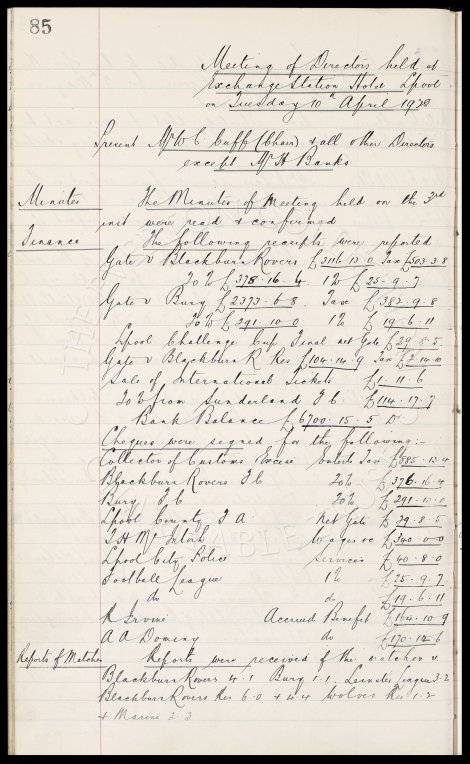 85
Meeting of Directors held at
Exchange Station Hotel Lpool
on Tuesday 10th April 1928
Present Mr W C Cuff (Chair) & all other Directors
except Mr H Banks
Minutes The Minutes of Meeting held on the 3rd
inst were read & confirmed
Finance The following receipts were reported
Gate v Blackburn Rovers £3116.13.0 Tax £503.3.8
20% £378.16.4 1% £25.9.7
Gate v Bury £2373.0.8 Tax £382.9.8
20% £291.10.0 1% £19.6.11
Lpool Challenge Cup Final net Gate £29.8.5
Gate v Blackburn R Res £104.14.9 Tax £2.14.10
Sale of International Tickets £1.11.6
20% from Sunderland F C £114.17.7
Bank Balance £6700.15.5 Dr
Cheques were signed for the following:-
Collector of Customs Excise Entert Tax £885.13.4
Blackburn Rovers F C 20% £376.16.4
Bury F C 20% £291.10.0
Lpool County F A Net Gate £29.8.5
T H McIntosh Wages &c £340.0.0
Lpool City Police Services £40.8.0
Football League 1% £25.9.7
do do £19.6.11
R Irvine Accrued Benefit £164.10.9
A A Dominy do £170.12.6
Reports of Matches Reports were received of the matches v
Blackburn Rovers 4.1 Bury 1.1 Leinster League 3.2
Blackburn Rovers Res 6.0 & 4.4 Wolves Res 1.2
& Marine 2.3